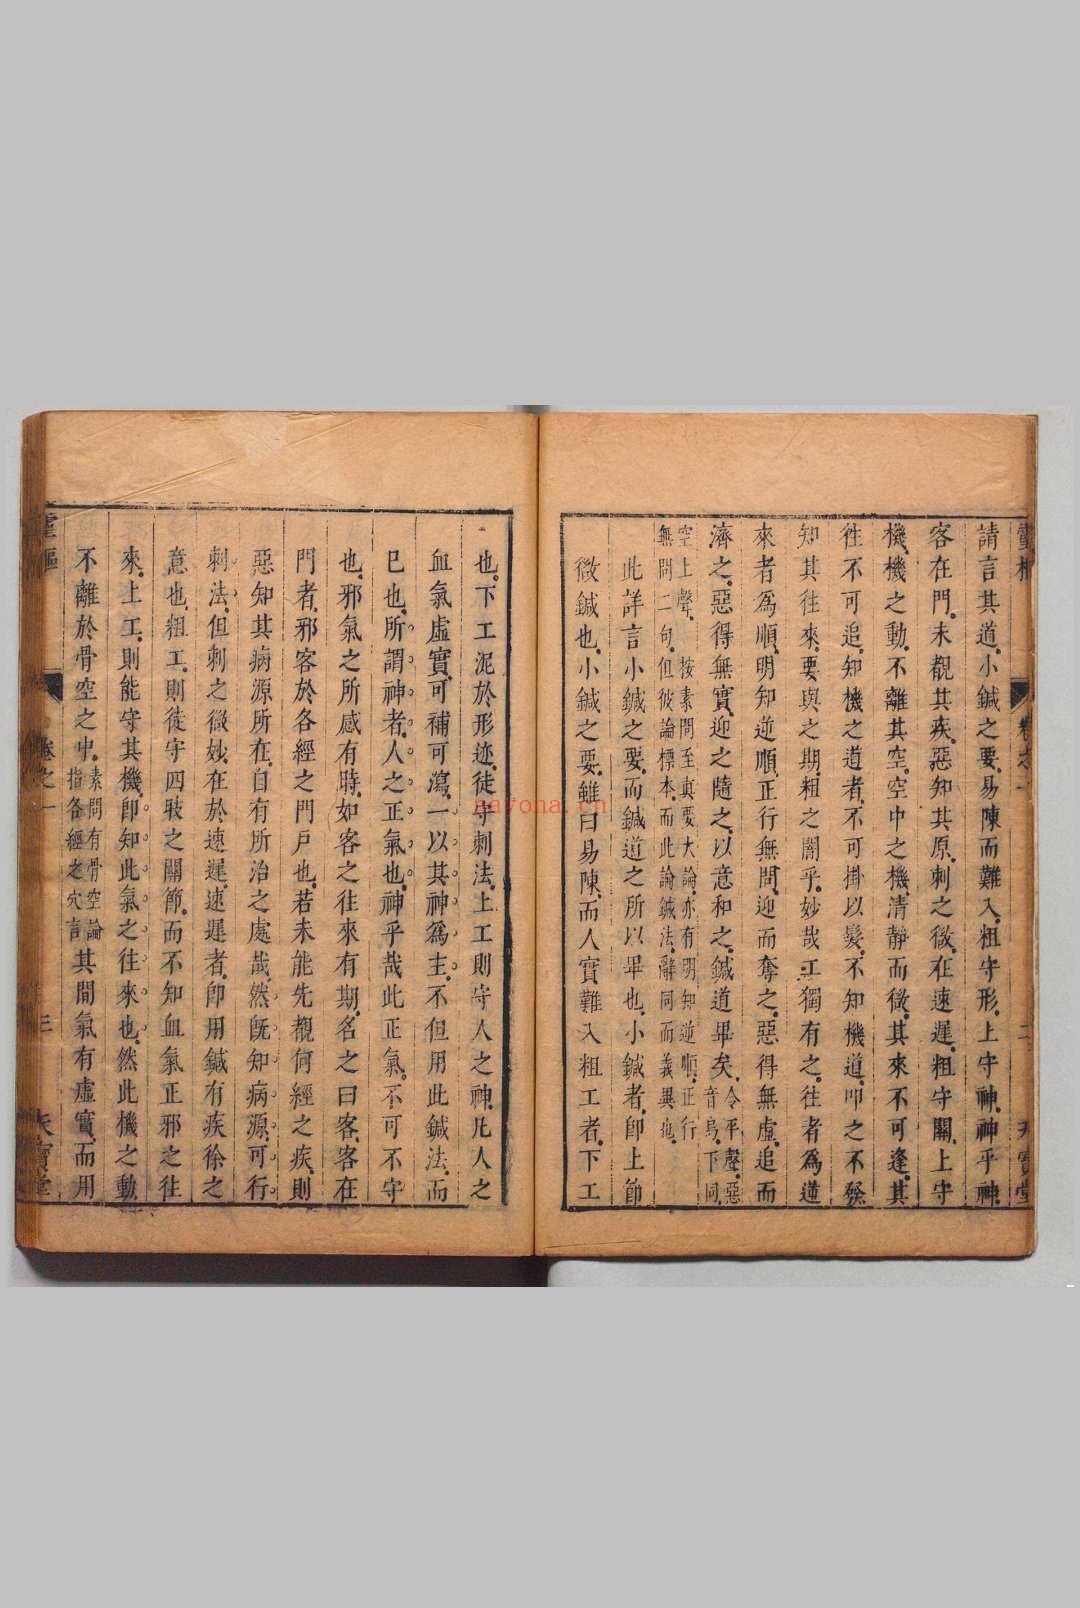 靈樞 卷之一 二 天寶堂
請言其道。小鍼之要。易陳而難入。粗守形。上守神。神乎神。
客在門。未覩其疾。惡知其原。刺之微。在速遲。粗守關。上守
機。機之動。不離其空。空中之機。清靜而微。其來不可逢。其
徃不可追。知機之道者。不可掛以髮。不知機道。叩之不發
知其徃來。要與之期。粗之闇乎。妙哉工獨有之。徃者為逆
來者為順。明知逆順。正行無問。迎而奪之。惡得無虛。追而
濟之。惡得無實。迎之隨之。以意和之。鍼道畢矣。
令平聲。惡
音烏。下同。
空上聲。 按素問至真要大論。亦有明知逆順。正行
無問二句。但彼論標本。而此論鍼法。辭同而義異也。
此詳言小鍼之要。而鍼道之所以畢也。小鍼者。即上節
微鍼也。小鍼之要。雖曰易陳。而人實難入粗工者。下工
也。下工泥於形迹。徒守刺法。上工則守人之神。凡人之
血氣虛實。可補可瀉。一以其神為主。不但用此鍼法。而
已也。所謂神者。人之正氣也。神乎哉。此正氣。不可不守
也。邪氣之所感有時。如客之往來有期。名之曰客。客在
門者。邪客於各經之門戶也。若未能先覩何經之疾。則
惡知其病源所在。自有所治之處哉。然既知病源。可行
刺法。但刺之微妙。在於速遲。速遲者。即用鍼有疾徐之
意也。粗工。則徒守四肢之關節。而不知血氣正邪之往
來。上工。則能守其機。即知此氣之往來也。然此機之動
不離於骨空之中。
素問有骨空論
指各經之穴言
其間氣有虛實。而用
靈樞 卷之一 三 天寶堂
nayona.cn